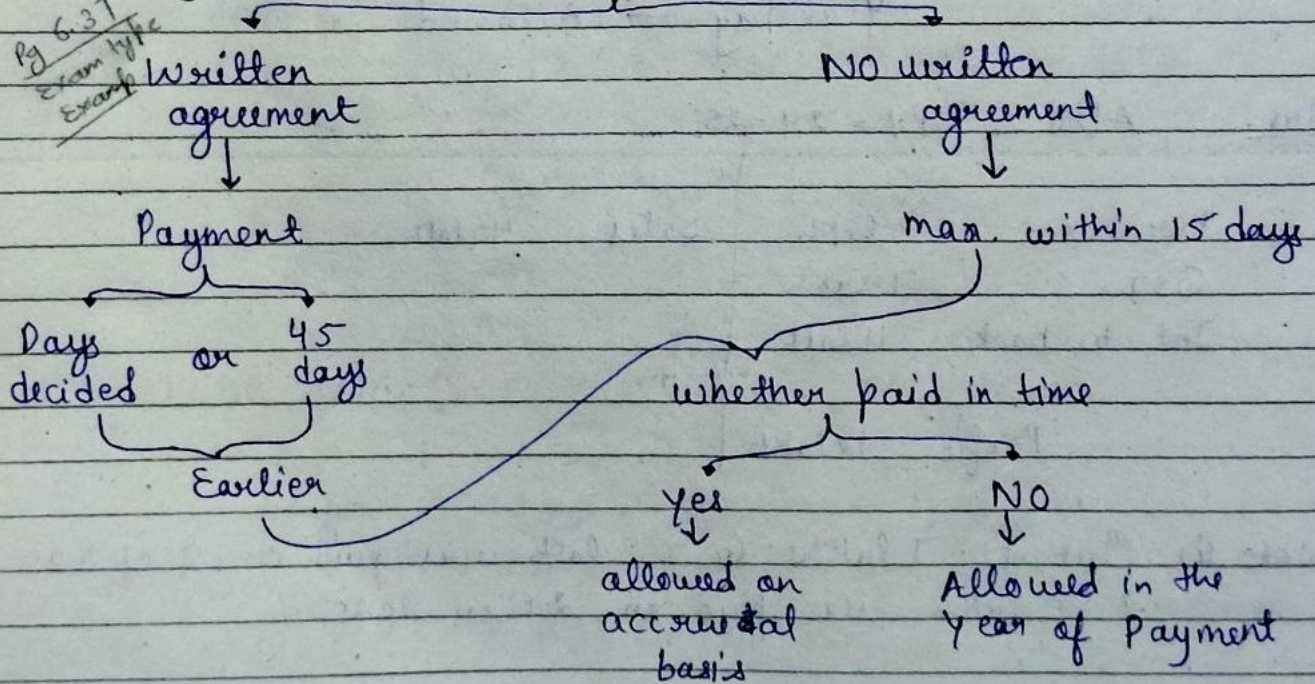 Pg 6.37
Exam type
Example
Written
agreement
NO written
agreement
Payment
max. within 15 days
Days
decided
or
45
days
whether paid in time
Earlier
Yes
NO
allowed on
accrual
basis
Allowed in the
Year of Payment